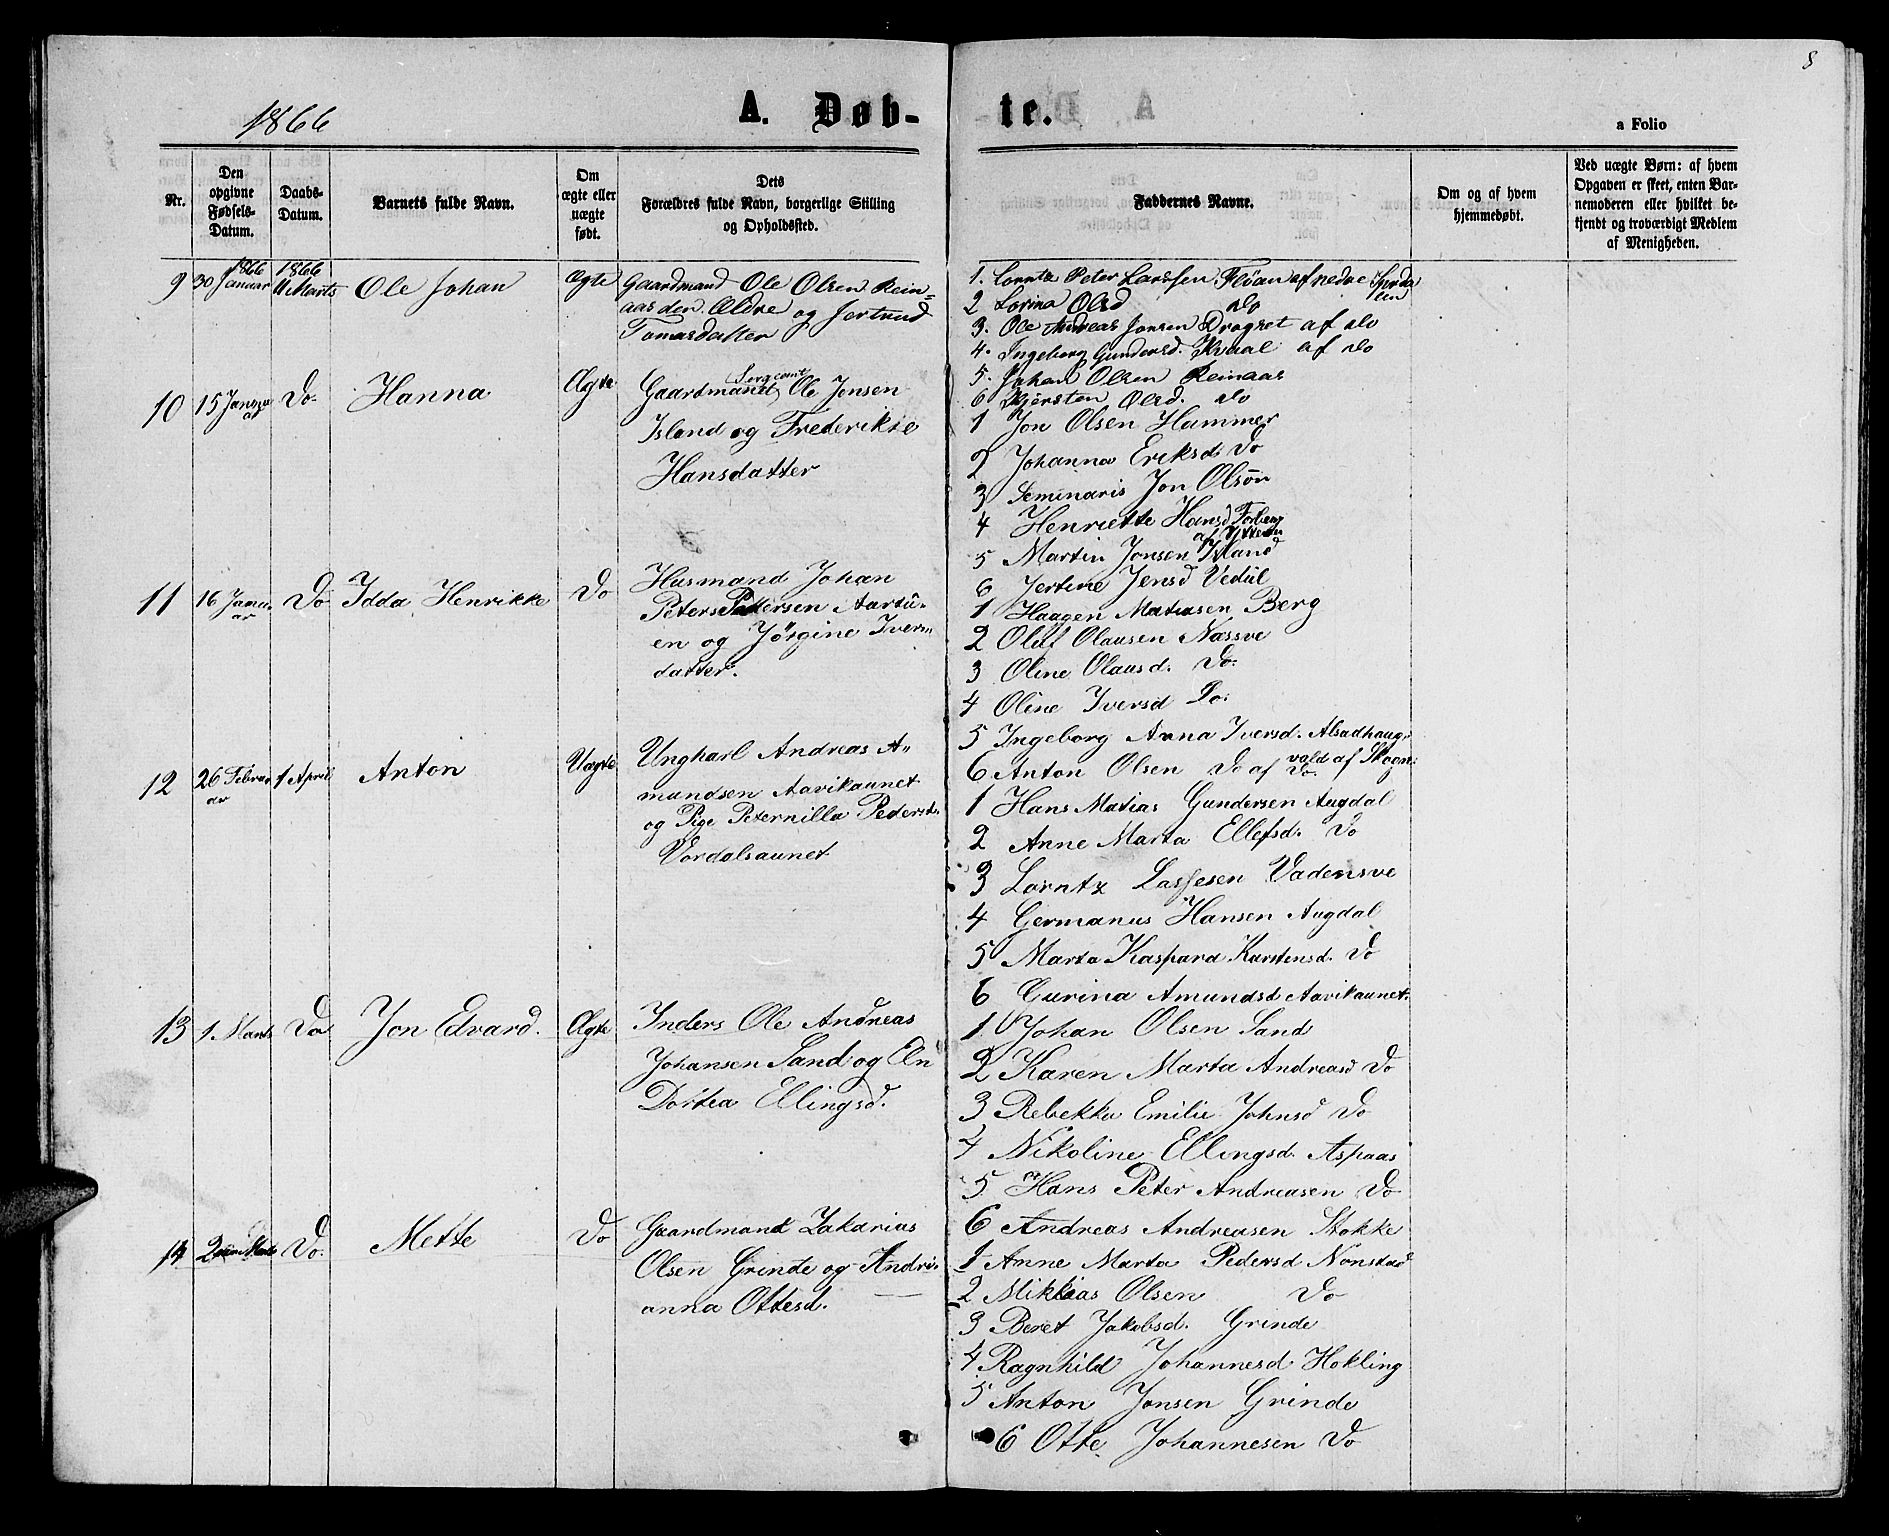 8
1866
A. Døb-
te.
a Folio
Nr.
Den opgivne Fødsels-Datum.
Daabs-Datum.
Barnets fulde Navn.
Om ægte eller uægte født.
Dets Forældres fulde Navn, borgerlige Stilling og Opholdssted.
Faddernes Navne.
Om og af hvem hjemmedøbt.
Ved uægte Børn: af hvem Opgaven er skeet, enten Barnemoderen eller hvilket bekjendt og troværdigt Medlem af Menigheden.
1866 1866
9 30 Januar 11 Marts Ole Johan Ægte Gaardmand Ole Olsen Rein-
aas den Ældre og Jertrud
Tomasdatter
1. Lorntz Peter Larssen Fløan af nedre
2 Lorina Olsd do
3. Ole Andreas Jonsen Dragset af do
4. Ingeborg Gundersd. Kvaal af do
5. Johan Olsen Reinaas
6 Kjersten Olsd. do
10 15 Januar Do. Hanna Ægte Gaardmand, Sergeant Ole Jensen
Island og Frederikke
Hansdatter
1 Jon Olsen Hammer
2 Johanna Eriksd. Do
3 Seminaris Jon Olsøn
4 Henriette Hansd Forberg
af Ytterøn
5 Martin Jonsen Island
6 Jertine Jensd Vedul
11 16 Januar Do Idda Henrikke Do Husmand Johan
Peters Petersen Aartu-
en og Jørgine Ivers-
datter.
1 Haagen Matiasen Berg
2 Oluf Olausen Næssve
3 Oline Olausd. Do.
4 Oline Iversd Do.
5 Ingeborg Anna Iversd. Alsadhaug
vald af Skogn
6 Anton Olsen Do af Do.
12 26 Februar 1 April Anton Uægte Ungkarl Andreas A-
mundsen Aavikaunet
og Pige Peternilla Pedersd.
Vordalsaunet
1 Hans Matias Gundersen Augdal
2 Anne Marta Ellefsd. Do
3 Lorntz Lassesen Vadensve
4 Germanus Hansen Augdal
5 Marta Kaspara Karstensd. Do
6 Curina Amundsd Aavikaunet.
13 1. Marts Do Jon Edvard. Ægte Inders Ole Andreas
Johansen Sand og Eln
Dortea Ellingsd.
1 Johan Olsen Sand
2 Karen Marta Andreasd Do
3 Rebekka Emilie Johnsd Do
4 Nikoline Ellingsd. Aspaas
5 Hans Peter Andreasen Do
6 Andreas Andreasen Stokke
14 2 Marts Do. Mette Do Gaardmand Zakarias
Olsen Grinde og Andri-
anna Ottesd.
1 Anne Marta Pedersd Nonstad
2 Miklias Olsen Do
3 Beret Jakobsd. Grinde
4 Ragnhild Johannesd Hokling
5 Anton Jonsen Grinde
6 Otte Johannesen Do